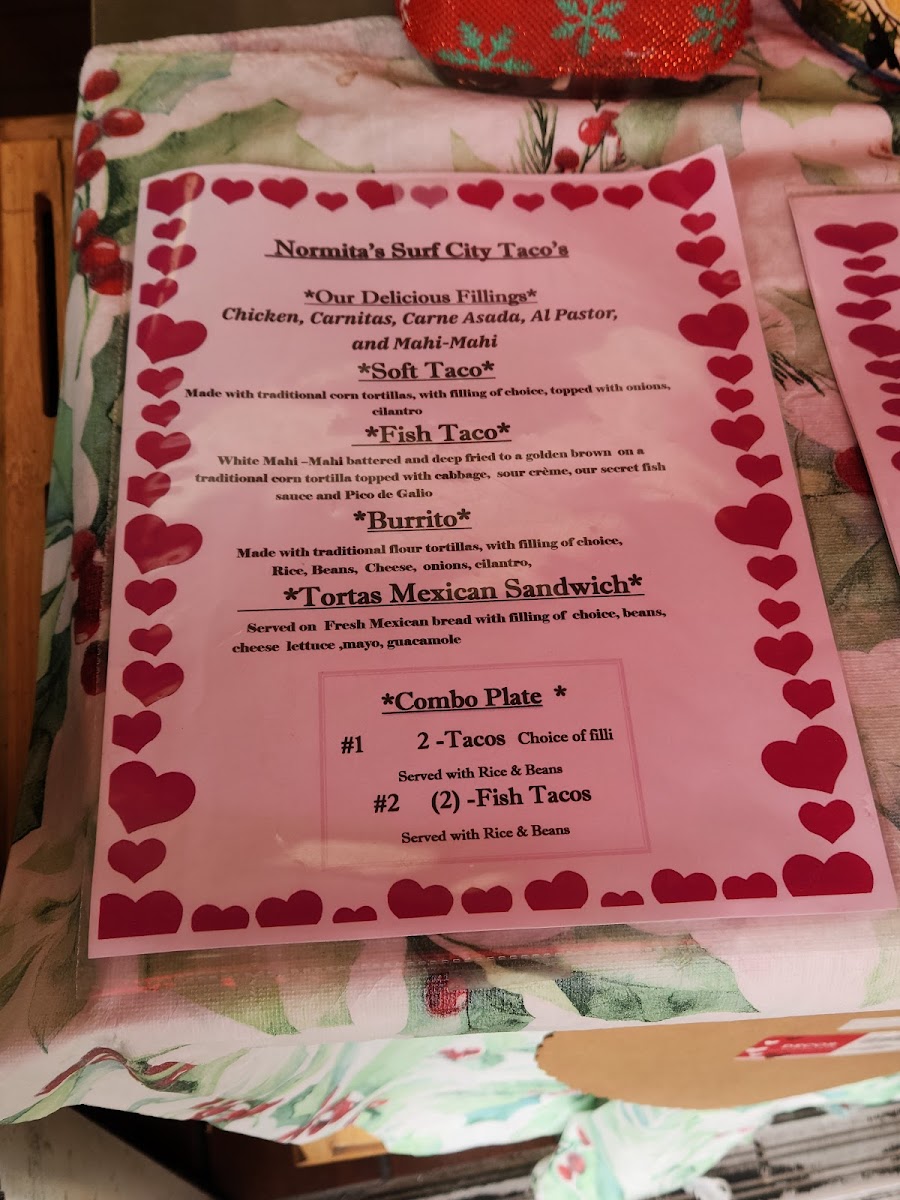 Normita's Surf City Taco's
*Our Delicious Fillings*
Chicken, Carnitas, Carne Asada, Al Pastor,
and Mahi-Mahi
*Soft Taco*
Made with traditional corn tortillas, with filling of choice, topped with onions,
cilantro
*Fish Taco*
White Mahi –Mahi battered and deep fried to a golden brown on a
traditional corn tortilla topped with cabbage, sour crème, our secret fish
sauce and Pico de Galio
*Burrito*
Made with traditional flour tortillas, with filling of choice,
Rice, Beans, Cheese, onions, cilantro,
*Tortas Mexican Sandwich*
Served on Fresh Mexican bread with filling of choice, beans,
cheese lettuce ,mayo, guacamole
*Combo Plate *
#1 2 -Tacos Choice of filli
Served with Rice & Beans
#2 (2) -Fish Tacos
Served with Rice & Beans
DECOR